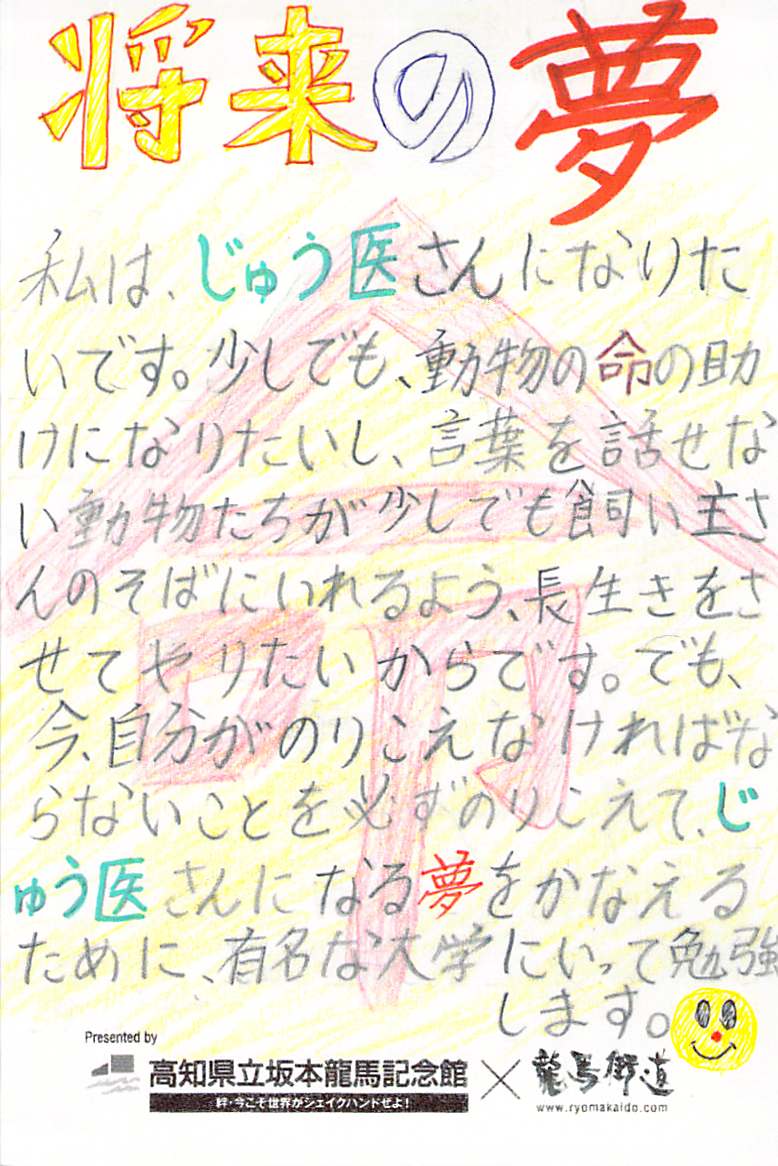 将来の夢
私は、じゅう医さんになりた
いです。少しでも、動物の命の助
けになりたいし、言葉を話せな
い動物たちが少しでも飼い主さ
んのそばにいれるよう、長生きをさ
せてやりたいからです。でも、
今、自分がのりこえなければな
らないことを必ずのりこえて、じ
ゅう医さんになる夢をかなえる
ために、有名な大学にいって勉強
します。
命
Presented by
高知県立坂本龍馬記念館×龍馬街道
絆・今こそ世界がシェイクハンドぜよ!
www.ryomakaido.com